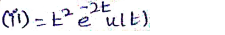 (iii) = t² e^{-2t} u(t)